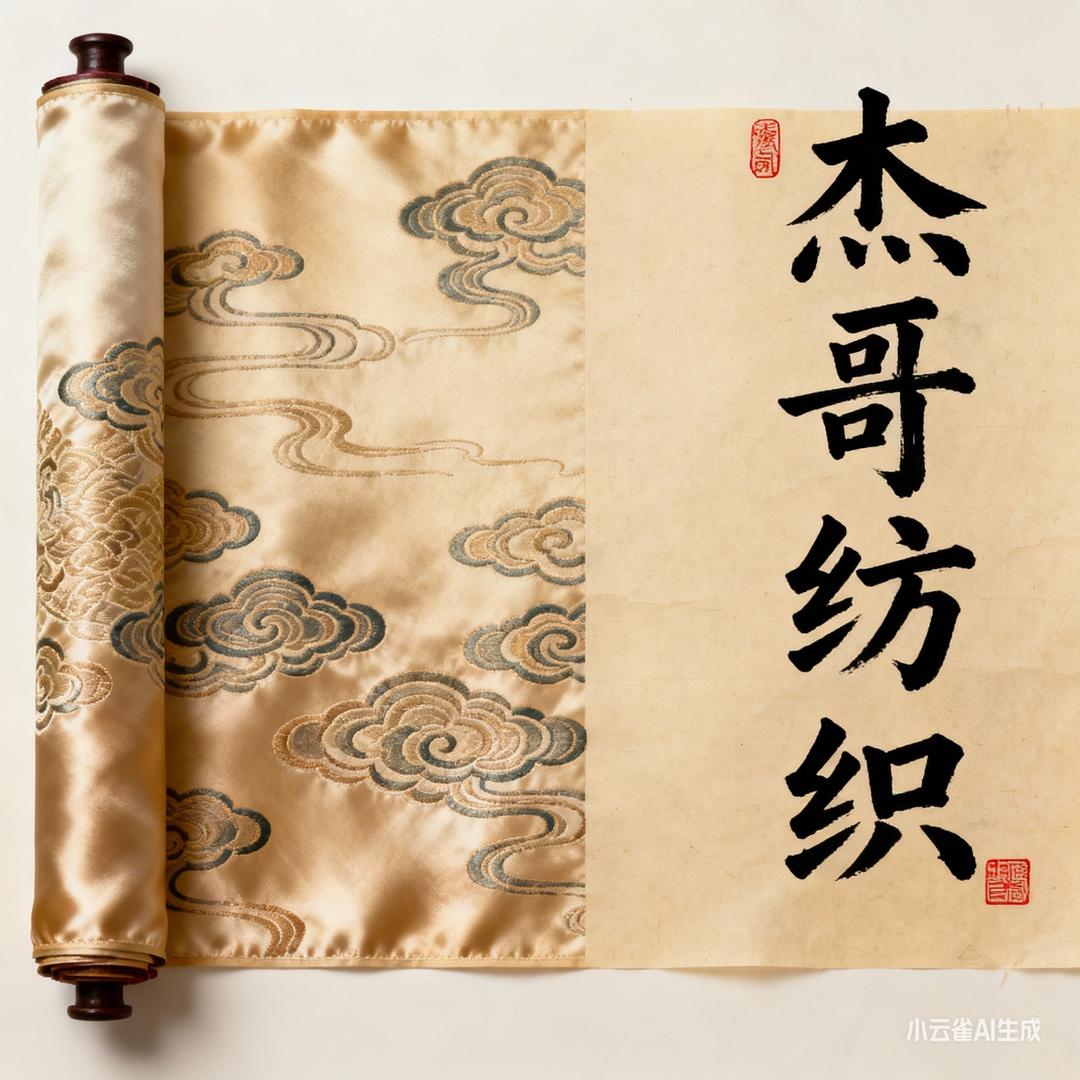 杰哥纺织
小云雀AI生成